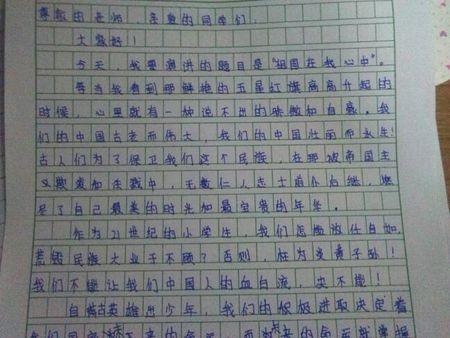 尊敬的老师，亲爱的同学们，
大家好！
今天，我要演讲的题目是“祖国在我心中”。
每当我看到那鲜艳的五星红旗高高升起的
时候，心里就有一种说不出的骄傲和自豪。我
们的中国古老而伟大，我们的中国壮丽而永生！
古人们为了保卫我们这个民族，在那被帝国主
义欺凌和生死中，无数仁人志士前仆后继，燃
尽了自己最美的时光和最宝贵的年华。
作为21世纪的小学生，我们怎能放任自如，
荒民族大业于不顾？否则，枉为炎黄子孙！
我们不能让我们中国人的血白流，决不能！
自古英雄出少年，我们的积极进取决定着
我们国家未来的命